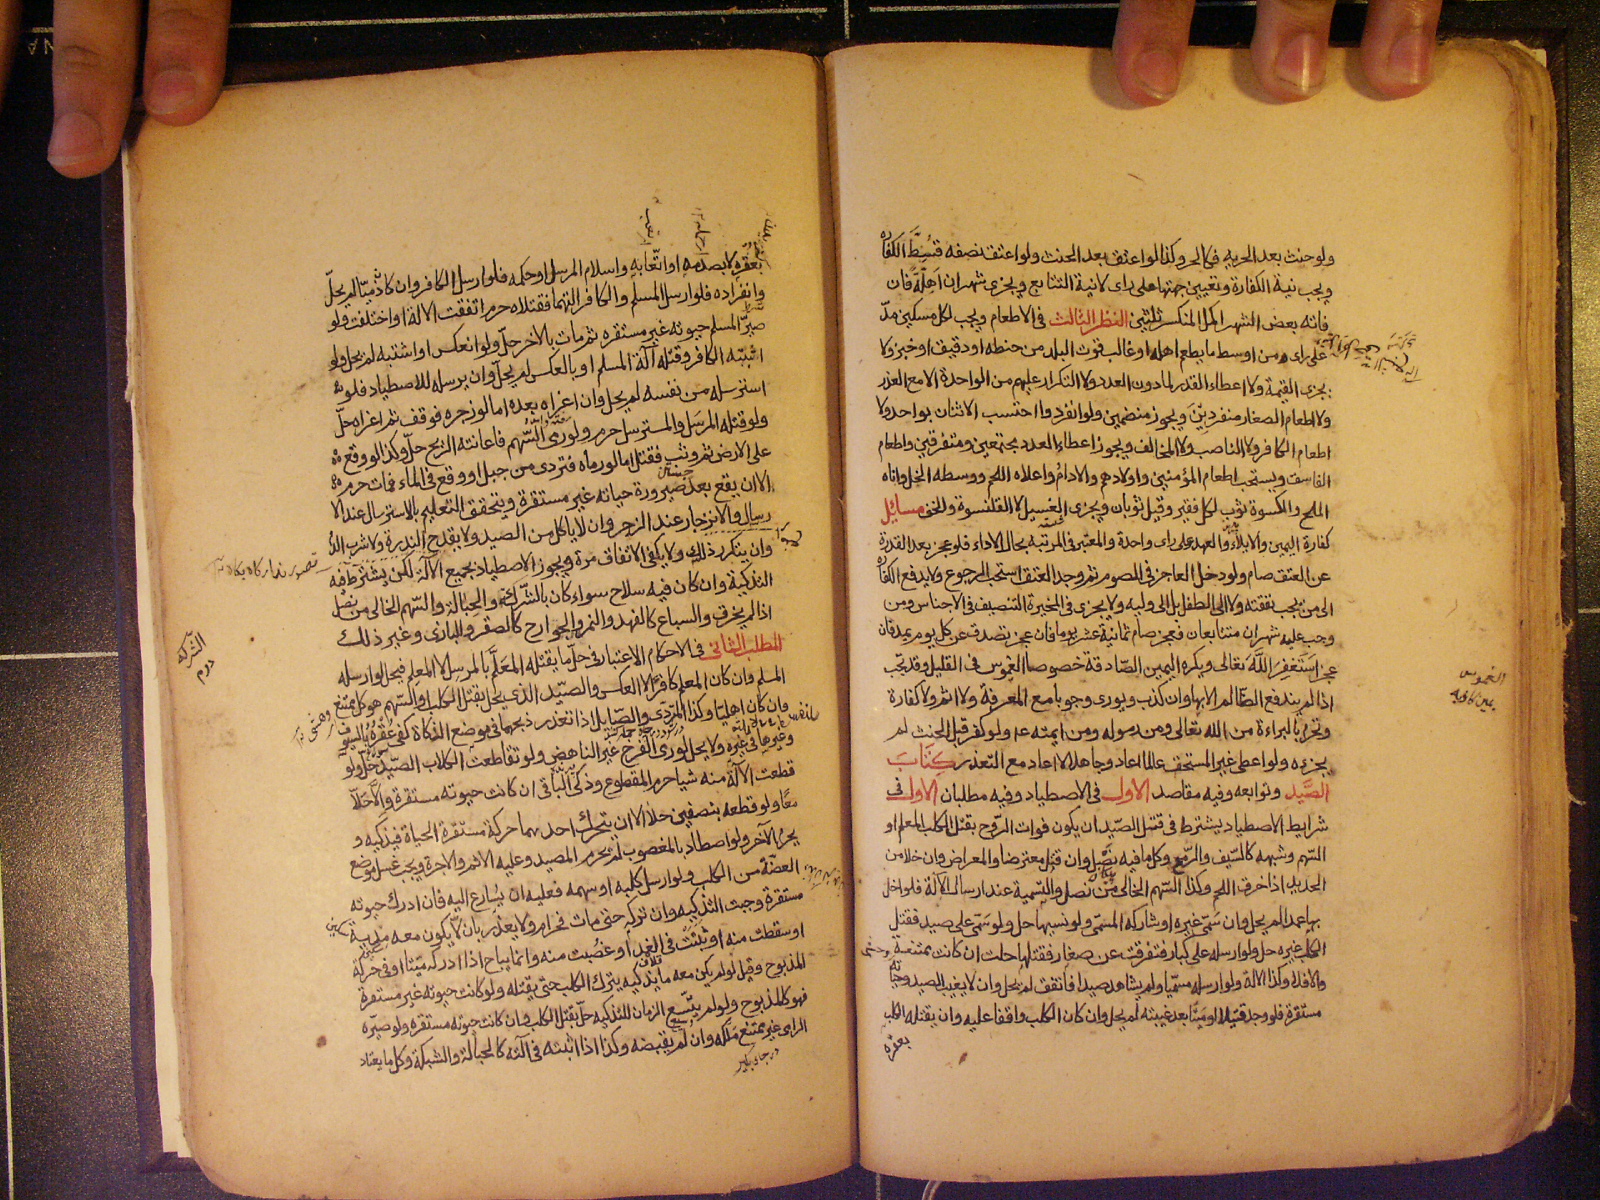 ولو حنث بعد الحرية فكالحر وكذا لو اعتق بعد الحنث ولو اعتق نصفه قسطت الكفارة
ويجب نية الكفارة وتعيين جهتها على راى لا نية التتابع ويجزى شهران اهلة فان
فاته بعض الشهر اكمل المنكسر ثلثين النظر الثالث فى الاطعام ويجب لكل مسكين مد
على راى من اوسط ما يطعم اهله او غالب قوت البلد من حنطة او دقيق او خبز ولا
يجزى القيمة ولا اعطاء القدر لمادون العدد ولا التكرار عليهم من الواحدة الا مع العذر
ولا اطعام الصغار منفردين ويجوز منضمين ولو انفردوا احتسب الاثنان بواحد ولا
اطعام الكافر ولا الناصب ولا المخالف ويجوز اعطاء العدد مجتمعين ومتفرقين واطعام
الفاسق ويستحب اطعام المؤمنين واولادهم والادام واعلاه اللحم ووسطه الخل وادناه
الملح والكسوة ثوب لكل فقير وقيل ثوبان ويجزى الغسيل لا القلنسوة والخف مسائل
كفارة اليمين والايلاء والعهد على راى واحدة والمعتبر فى المرتبة بحال الاداء فلو عجز بعد القدرة
عن العتق صام ولو دخل العاجز فى الصوم ثم وجد العتق استحب الرجوع ولا يدفع الكفارة
الى من يجب نفقته ولا الى الطفل بل الى وليه ولا يجزى فى المخيرة التنصيف فى الاجناس ومن
وجب عليه شهران متتابعان فعجز صام ثمانية عشر يوما فان عجز تصدق عن كل يوم بمد فان
عجز استغفر الله تعالى ويكره اليمين الصادقة خصوصا الغموس فى القليل وقد يجب
اذا لم يندفع الظالم الا بها وان كذب ويورى وجوبا مع المعرفة ولا اثم ولا كفارة
وتحرم بالبراءة من الله تعالى ومن رسوله ومن ايمته ع ولو كفر قبل الحنث لم
يجزه ولو اعطى غير المستحق عالما اعاد وجاهلا لا اعاد مع التعذر كتاب
الصيد وتوابعه وفيه مقاصد الاول فى الاصطياد وفيه مطلبان الاول فى
شرايط الاصطياد يشترط فى قتيل الصيد ان يكون فوات الروح بقتل الكلب المعلم او
السهم وشبهه كالسيف والرمح وكل ما فيه نصل وان قتل معترضا والمعراض وان خلا من
الحديد اذا خرق اللحم وكذا السهم الخالى من نصل والتسمية عند ارسال الآلة فلو اخل
بها عمدا لم يحل وان سمى غيره او شاركه المسمى ولو نسيها حل ولو سمى على صيد فقتل
الكلب غيره حل ولو ارسله على كبار فتفرقت عن صغار فقتلها حلت ان كانت ممتنعة
والا فلا وكذا الآلة ولو ارسله مسميا ولم يشاهد صيدا فاتفق لم يحل وان لا يغيب الصيد وحياته
مستقرة فلو وجد قتيلا او ميتا بعد غيبته لم يحل وان كان الكلب واقفا عليه وان يقتله الكلب
بعقره
الغموس
يمين كاذبه
بعقره لا بصدمه او اتعابه واسلام المرسل او حكمه فلو ارسل الكافر وان كان ذميا لم يحل
وانفراده فلو ارسل المسلم والكافر آلتهما فقتلاه حرم اتفقت الآلة او اختلفت ولو
صير المسلم حيوته غير مستقرة ثم مات بالآخر حل ولو انعكس او اشتبه لم يحل ولو
اثبته الكافر وقتله آلة المسلم او بالعكس لم يحل وان يرسله للاصطياد فلو
استرسله من نفسه لم يحل وان اغراه بعده اما لو زجره فوقف ثم اغراه حل
ولو قتله المرسل والمسترسل حرم ولو رمى السهم فاعانته الريح حل وكذا لو وقع
على الارض ثم وثب فقتل اما لو رماه فتردى من جبل او وقع فى الماء فمات حرم
الا ان يقع بعد صيرورة حياته غير مستقرة ويتحقق التعليم بالاسترسال عند الا
رسال والانزجار عند الزجر وان لا ياكل من الصيد ولا يقدح الندرة ولا شرب الدم
وان يتكرر ذلك ولا يكفى الاتفاق مرة ويجوز الاصطياد بجميع الآلة لكن يشترط فيه
التذكية وان كان فيه سلاح سواء كان بالشركة والحبالة والسهم الخالى من نصل
اذا لم يخرق والسباع كالفهد والنمر والجوارح كالصقر والبازى وغير ذلك
المطلب الثانى فى الاحكام الاعتبار فى حل ما يقتله المعلم بالمرسل لا المعلم فيحل لو ارسله
المسلم وان كان المعلم كافرا لا العكس والصيد الذى يحل بقتل الكلب او السهم هو كل ممتنع
وان كان اهليا وكذا المتردى والصايل اذا تعذر ذبحهما فى موضع الذكاة كفى عقره بالسيوف
وغيرها فى غيره ولا يحل لو رمى الفرخ غير الناهض ولو تقاطعت الكلاب الصيد حل ولو
قطعت الآلة منه شيا حرم المقطوع وذكى الباقى ان كانت حيوته مستقرة والا حلا
معا ولو قطعه بنصفين حلا الا ان يتحرك احدهما حركة مستقرة الحياة فيذكيه و
يحرم الآخر ولو اصطاد بالمغصوب لم يحرم المصيد وعليه الاثم والاجرة ويجب غسل موضع
العضة من الكلب ولو ارسل كلبه او سهمه فعليه ان يسارع اليه فان ادرك حيوته
مستقرة وجبت التذكيه وان تركه حتى مات فحرام ولا يعذر بان لا يكون معه مدية
او سقطت منه او تثبت فى الغمد او غصبت منه وانما يباح اذا ادركه ميتا او فى حركة
المذبوح وقيل لو لم يكن معه ما يذكيه يترك الكلب حتى يقتله ولو كانت حيوته غير مستقرة
فهو كالمذبوح ولو لم يتسع الزمان للتذكيه حل بقتل الكلب وان كانت حيوته مستقرة ولو صيره
الرامى غير ممتنع ملكه وان لم يقبضه وكذا اذا اثبته فى آلته كالحبالة والشبكة وكل ما يعتاد
الشركة
دوم